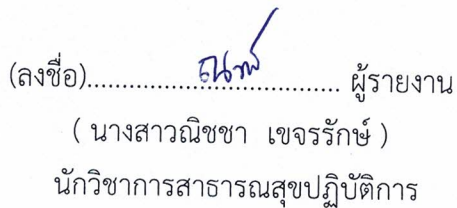 (ลงชื่อ).................................... ผู้รายงาน
( นางสาวณิชชา เขจรรักษ์ )
นักวิชาการสาธารณสุขปฏิบัติการ